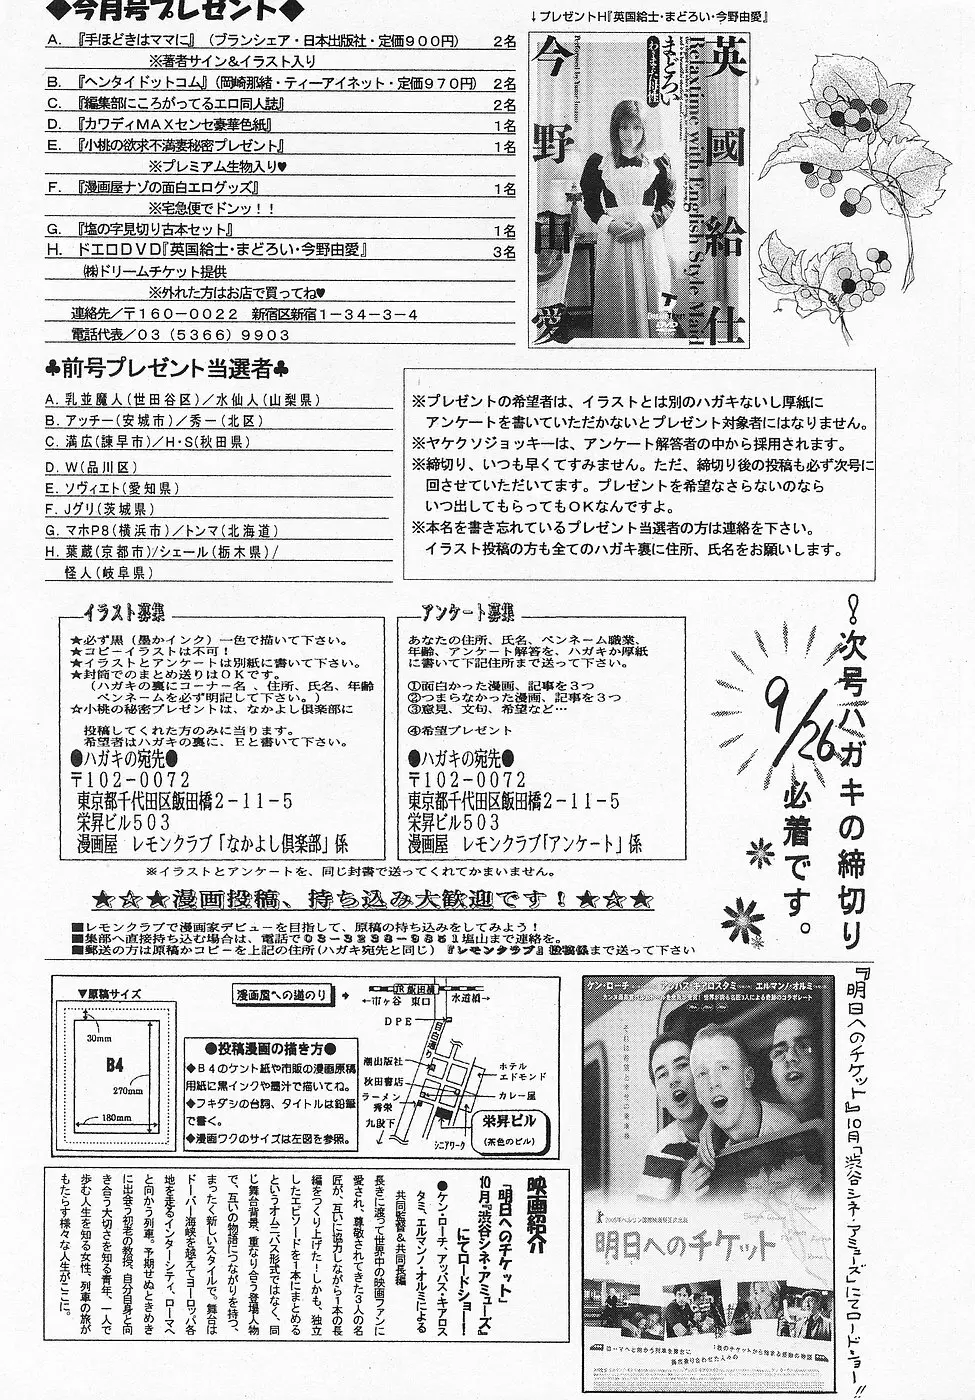 ◆今月号プレゼント◆
↓プレゼントH『英国給士・まどろい・今野由愛』
A. 『手ほどきはママに』(ブランシェア・日本出版社・定価900円) 2名
※著者サイン&イラスト入り
B. 『ヘンタイドットコム』(岡崎那緒・ティーアイネット・定価970円) 2名
C. 『編集部にころがってるエロ同人誌』 2名
D. 『カワディMAXセンセ豪華色紙』 1名
E. 『小桃の欲求不満妻秘密プレゼント』 1名
※プレミアム生物入り♥
F. 『漫画屋ナゾの面白エログッズ』 1名
※宅急便でドンッ!!
G. 『塩の字見切り古本セット』 1名
H. ドエロDVD『英国給士・まどろい・今野由愛』 3名
㈱ドリームチケット提供
※外れた方はお店で買ってね♥
連絡先/〒160-0022 新宿区新宿1-34-3-4
電話代表/03(5366)9903
英國給仕
Relaxtime with English Style Maid
まどろい
今野由愛
♣前号プレゼント当選者♣
A. 乳並魔人(世田谷区)/水仙人(山梨県)
B. アッチー(安城市)/秀一(北区)
C. 満広(諫早市)/H・S(秋田県)
D. W(品川区)
E. ソヴィエト(愛知県)
F. Jグリ(茨城県)
G. マホP8(横浜市)/トンマ(北海道)
H. 葉蔵(京都市)/シェール(栃木県)/
怪人(岐阜県)
※プレゼントの希望者は、イラストとは別のハガキないし厚紙に
アンケートを書いていただかないとプレゼント対象者にはなりません。
※ヤケクソジョッキーは、アンケート解答者の中から採用されます。
※締切り、いつも早くてすみません。ただ、締切り後の投稿も必ず次号に
回させていただいてます。プレゼントを希望なさらないのなら
いつ出してもらってもOKなんですよ。
※本名を書き忘れているプレゼント当選者の方は連絡を下さい。
イラスト投稿の方も全てのハガキ裏に住所、氏名をお願いします。
イラスト募集
★必ず黒(墨かインク)一色で描いて下さい。
★コピーイラストは不可!
★イラストとアンケートは別紙に書いて下さい。
★封筒でのまとめ送りはOKです。
(ハガキの裏にコーナー名、住所、氏名、年齢
ペンネームを必ず明記して下さい。)
☆小桃の秘密プレゼントは、なかよし倶楽部に
投稿してくれた方のみに当ります。
希望者はハガキの裏に、Eと書いて下さい。
●ハガキの宛先●
〒102-0072
東京都千代田区飯田橋2-11-5
栄昇ビル503
漫画屋 レモンクラブ「なかよし倶楽部」係
アンケート募集
あなたの住所、氏名、ペンネーム職業、
年齢、アンケート解答を、ハガキか厚紙
に書いて下記住所まで送って下さい。
①面白かった漫画、記事を3つ
②つまらなかった漫画、記事を3つ
③意見、文句、希望など…
④希望プレゼント
●ハガキの宛先●
〒102-0072
東京都千代田区飯田橋2-11-5
栄昇ビル503
漫画屋 レモンクラブ「アンケート」係
!次号ハガキの締切り
9/26
必着です。
※イラストとアンケートを、同じ封書で送ってくれてかまいません。
★☆★漫画投稿、持ち込み大歓迎です!★☆★
■レモンクラブで漫画家デビューを目指して、原稿の持ち込みをしてみよう!
■集部へ直接持ち込む場合は、電話で03-3238-9851塩山まで連絡を。
■郵送の方は原稿かコピーを上記の住所(ハガキ宛先と同じ)『レモンクラブ』投稿係まで送って下さい
▼原稿サイズ
30mm
B4
270mm
180mm
漫画屋への道のり
JR飯田橋
←市ヶ谷 東口 水道橋→
DPE
目白通り
潮出版社
秋田書店
ラーメン秀栄
九段下
ホテルエドモンド
カレー屋
栄昇ビル
(茶色のビル)
シニアワーク
●投稿漫画の描き方●
◆B4のケント紙や市販の漫画原稿
用紙に黒インクや墨汁で描いてね。
◆フキダシの台詞、タイトルは鉛筆
で書く。
◆漫画ワクのサイズは左図を参照。
映画紹介
『明日へのチケット』
10月『渋谷シネ・アミューズ』
にてロードショー!
●ケン・ローチ、アッバス・キアロス
タミ、エルマンノ・オルミによる
共同監督&共同長編
長きに渡って世界中の映画ファンに
愛され、尊敬されてきた3人の名
匠が、互いに協力しながら1本の長
編をつくり上げた!しかも、独立
したエピソードを1本にまとめる
というオムニバス形式ではなく、同
じ舞台背景、重なり合う登場人物
で、互いの物語につながりを持つ、
まったく新しいスタイルで。舞台は
ドーバー海峡を越えてヨーロッパ各
地を走るインターシティ、ローマへ
と向かう列車。予期せぬときめき
に出会う初老の教授、自分自身と向
き合う大切さを知る青年、一人で
歩む人生を知る女性、列車の旅が
もたらす様々な人生がここに。
ケン・ローチ アッバス・キアロスタミ エルマンノ・オルミ
明日へのチケット
『明日へのチケット』10月「渋谷シネ・アミューズ」にてロードショー!!